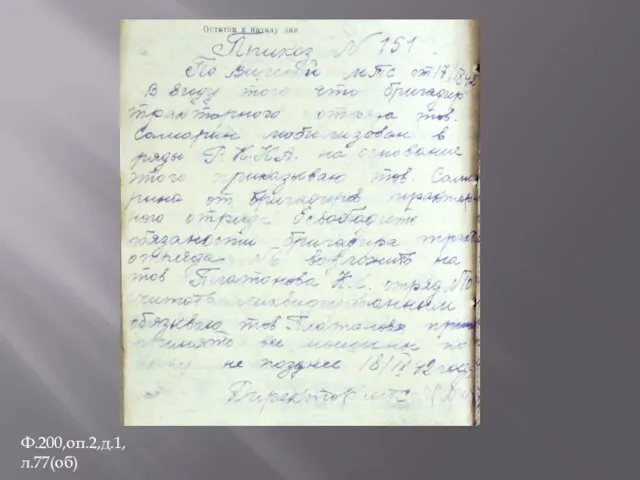 Остаток к началу дня
Приказ N 151.
По МТС от 17/IX 42
В виду того что бригадир
тракторного отряда тов.
Самарин мобилизован в
ряды Р.К.К.А. на основание
этого приказываю тов. Сама
рина от бригадиров трактор
ного отряда Освободить
обязаности бригадира
отряда возложить на
тов Платонова отряд
считать ликвидированным
обязываю тов Платонова
все машины
не позднее 18/IX 42 года
Директор МТС
Ф.200,оп.2,д.1,
л.77(об)